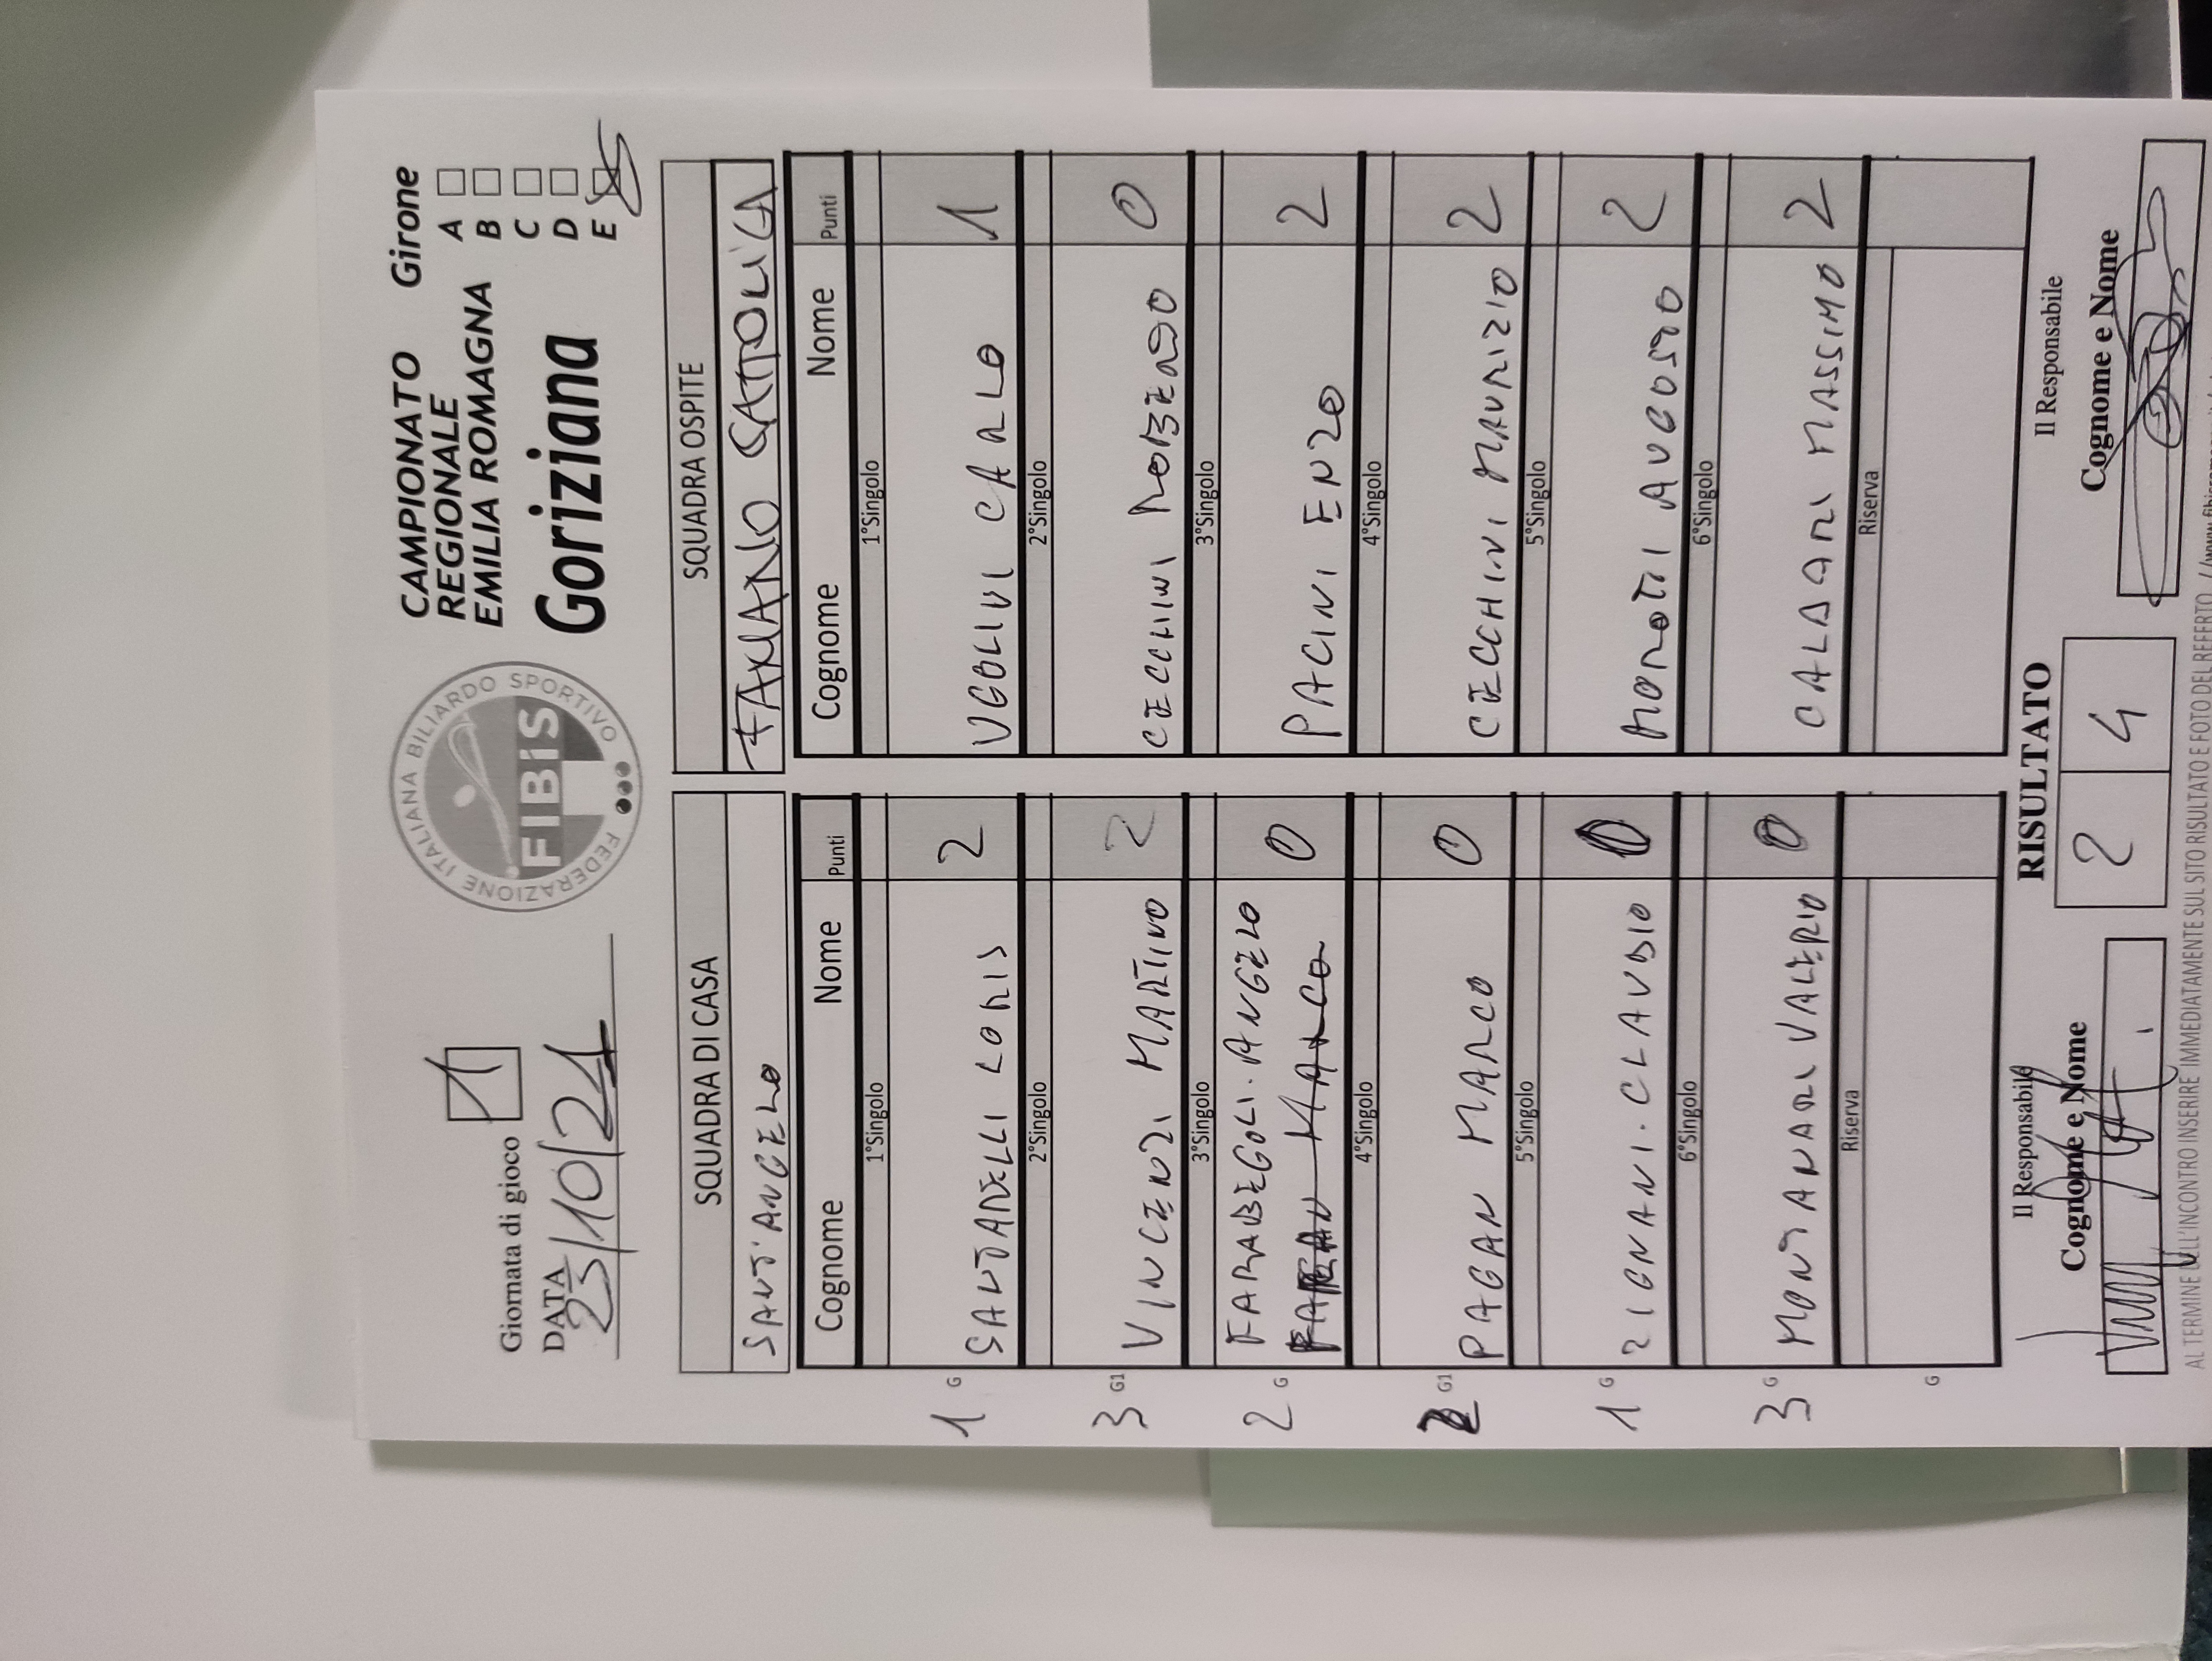 Giornata di gioco 1
DATA 23/10/24
FEDERAZIONE ITALIANA BILIARDO SPORTIVO
FIBiS
CAMPIONATO
REGIONALE
EMILIA ROMAGNA
Goriziana
Girone
A
B
C
D
E
SQUADRA DI CASA
SANT'ANGELO
Cognome Nome Punti
1°Singolo
1 G SANTARELLI LORIS 2
2°Singolo
3 G1 VINCENZI MARTINO 2
3°Singolo
2 G FARABEGOLI. ANGELO 0
4°Singolo
2 G1 PAGAN MARCO 0
5°Singolo
1 G ZIGNANI. CLAUDIO 0
6°Singolo
3 G MONTANARI VALERIO 0
Riserva
G
SQUADRA OSPITE
FANANO CATTOLICA
Cognome Nome Punti
1°Singolo
UGOLINI CARLO 1
2°Singolo
CECCHINI ROBERTO 0
3°Singolo
PACINI ENZO 2
4°Singolo
CECCHINI MAURIZIO 2
5°Singolo
MOROTTI AUGUSTO 2
6°Singolo
CALDARI MASSIMO 2
Riserva
Il Responsabile
Cognome e Nome
RISULTATO
2 4
Il Responsabile
Cognome e Nome
AL TERMINE DELL'INCONTRO INSERIRE IMMEDIATAMENTE SUL SITO RISULTATO E FOTO DEL REFERTO